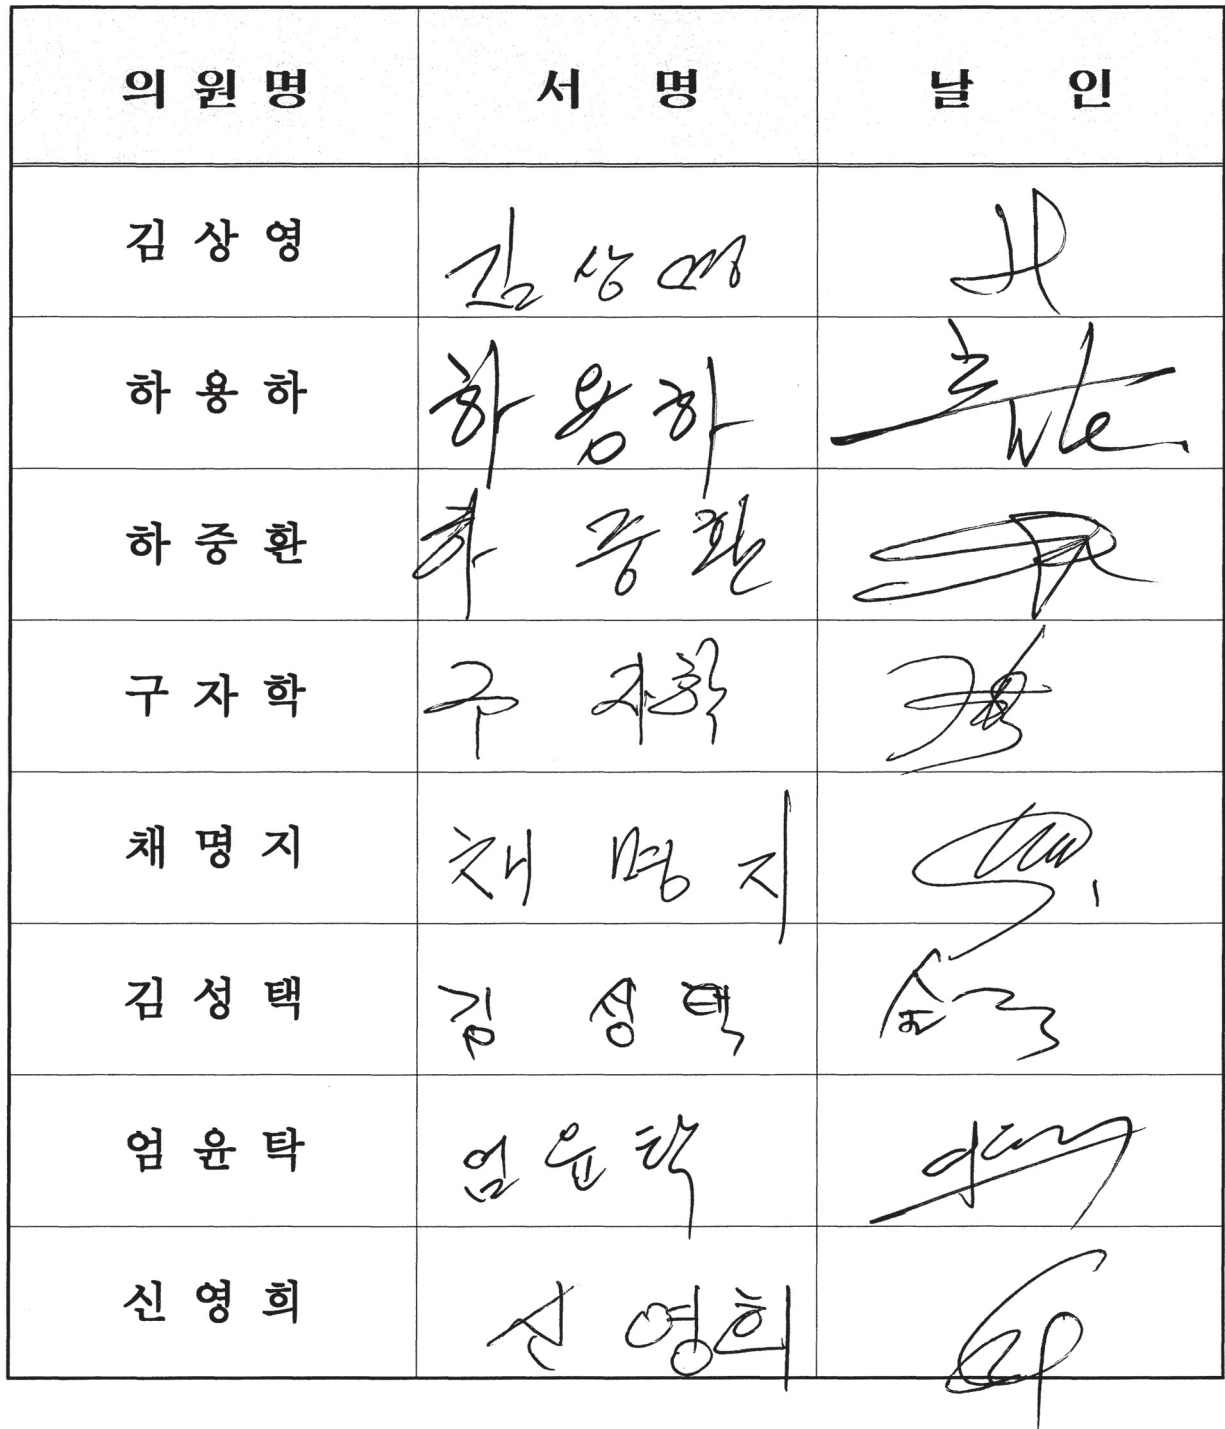 의원명 서명 날인
김상영 김상영
하용하 하용하
하중환 하중환
구자학 구자학
채명지 채명지
김성택 김성택
엄윤탁 엄윤탁
신영희 신영희